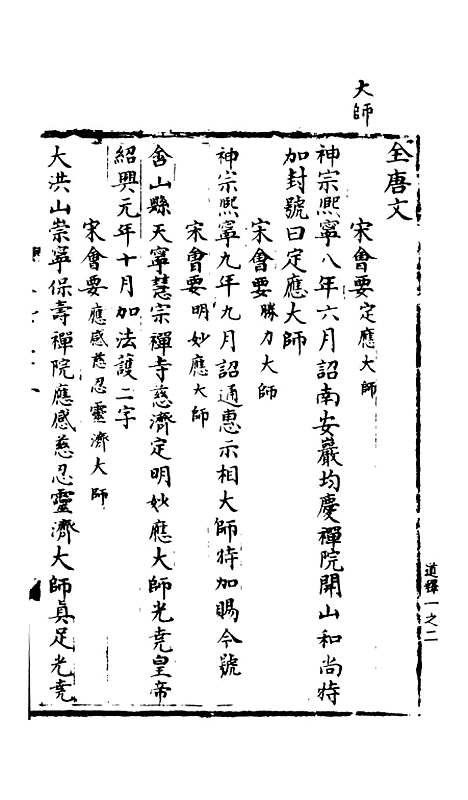 大師
全唐文
宋會要定應大師
神宗熙寧八年六月詔南安巖均慶禪院開山和尚特
加封號曰定應大師
宋會要勝力大師
神宗熙寧九年九月詔通惠示相大師特加賜今號
宋會要明妙應大師
含山縣天寧慧宗禪寺慈濟定明妙應大師光堯皇帝
紹興元年十月加法護二字
宋會要應感慈忍靈濟大師
大洪山崇寧保壽禪院應感慈忍靈濟大師真足光堯
道釋一之二